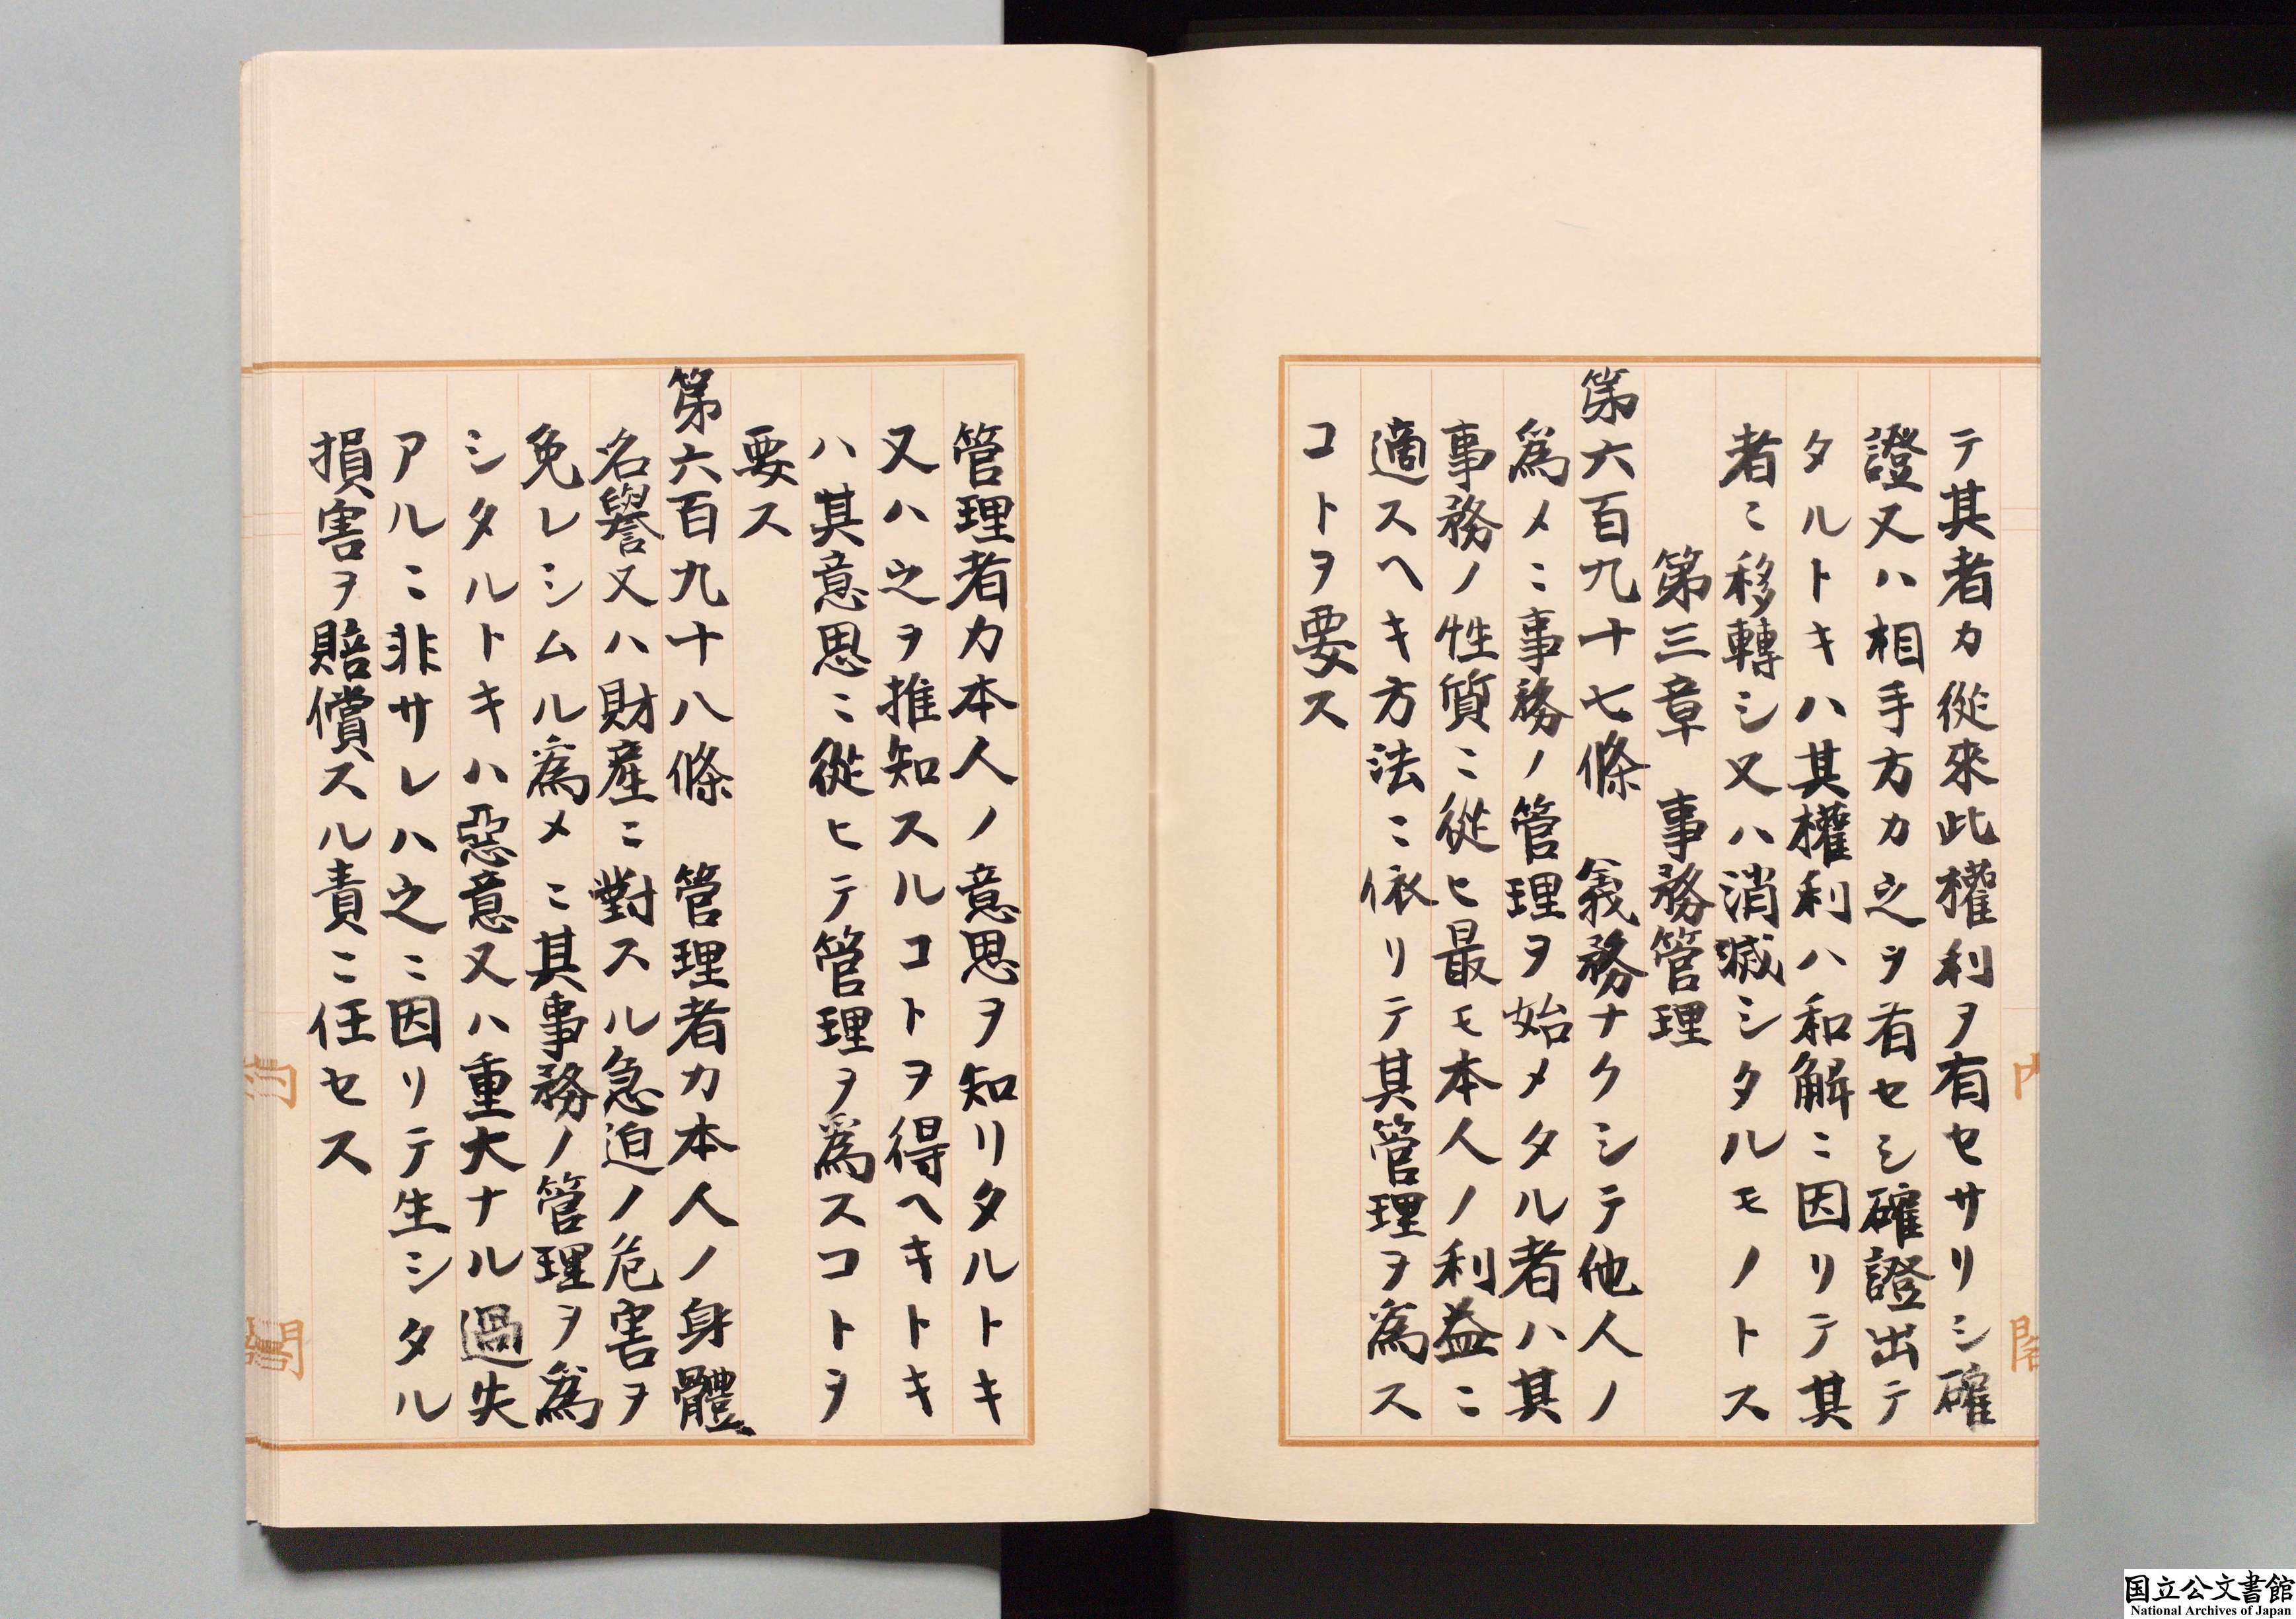 テ其者カ從來此權利ヲ有セサリシ確
證又ハ相手方カ之ヲ有セシ確證出テ
タルトキハ其權利ハ和解ニ因リテ其
者ニ移轉シ又ハ消滅シタルモノトス
第三章　事務管理
第六百九十七條　義務ナクシテ他人ノ
爲メニ事務ノ管理ヲ始メタル者ハ其
事務ノ性質ニ從ヒ最モ本人ノ利益ニ
適スヘキ方法ニ依リテ其管理ヲ爲ス
コトヲ要ス
管理者カ本人ノ意思ヲ知リタルトキ
又ハ之ヲ推知スルコトヲ得ヘキトキ
ハ其意思ニ從ヒテ管理ヲ爲スコトヲ
要ス
第六百九十八條　管理者カ本人ノ身體
名譽又ハ財產ニ對スル急迫ノ危害ヲ
免レシムル爲メニ其事務ノ管理ヲ爲
シタルトキハ惡意又ハ重大ナル過失
アルニ非サレハ之ニ因リテ生シタル
損害ヲ賠償スル責ニ任セス
国立公文書館
National Archives of Japan